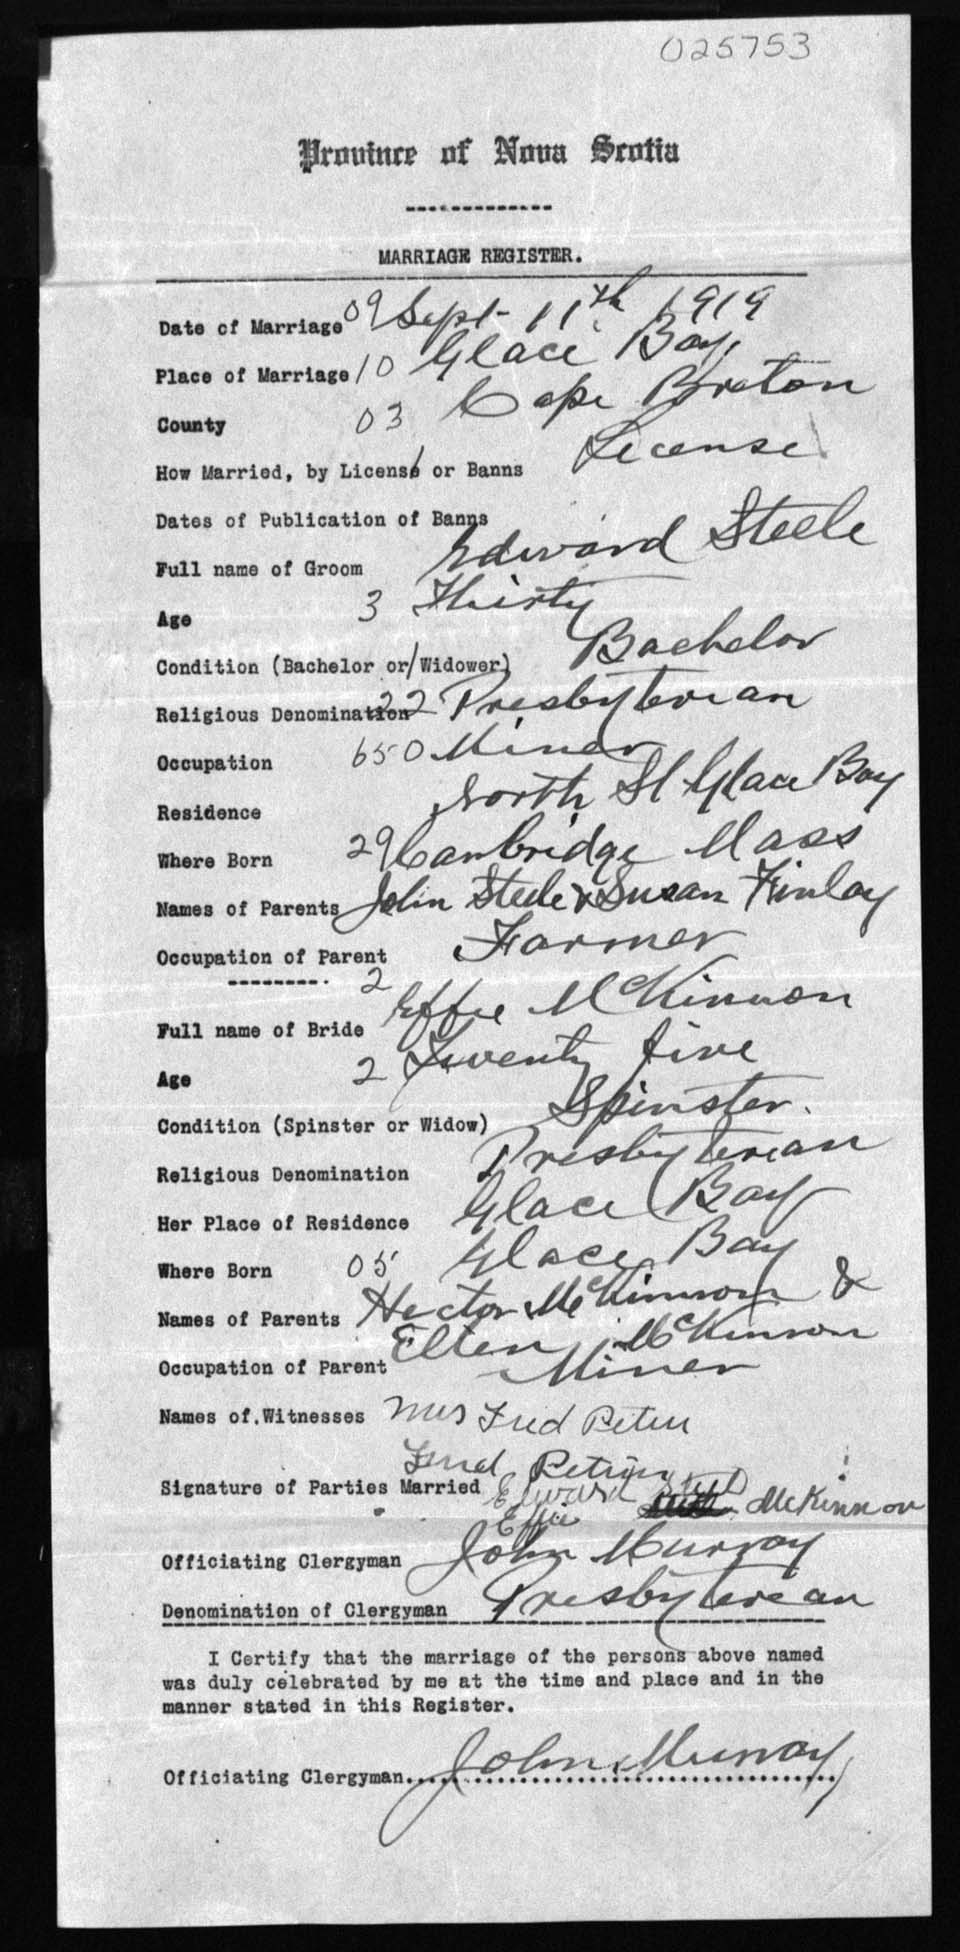 025753
Province of Nova Scotia
MARRIAGE REGISTER.
Date of Marriage 09 Sept- 11th 1919
Place of Marriage 10 Glace Bay,
County 03 Cape Breton
How Married, by License or Banns License
Dates of Publication of Banns
Full name of Groom Edward Steele
Age 3 Thirty
Condition (Bachelor or Widower) Bachelor
Religious Denomination 22 Presbyterian
Occupation 650 Miner
Residence North St Glace Bay
Where Born 29 Cambridge Mass
Names of Parents John Steele & Susan Finlay
Occupation of Parent Farmer
2
Full name of Bride Effie McKinnon
Age 2 Twenty five
Condition (Spinster or Widow) Spinster.
Religious Denomination Presbyterian
Her Place of Residence Glace Bay
Where Born 05 Glace Bay
Names of Parents Hector McKinnon &
Ellen McKinnon
Occupation of Parent Miner
Names of Witnesses Mrs Fred
Fred
Signature of Parties Married Edward
Effie McKinnon
Officiating Clergyman John Murray
Denomination of Clergyman Presbyterian
I Certify that the marriage of the persons above named
was duly celebrated by me at the time and place and in the
manner stated in this Register.
Officiating Clergyman John Murray